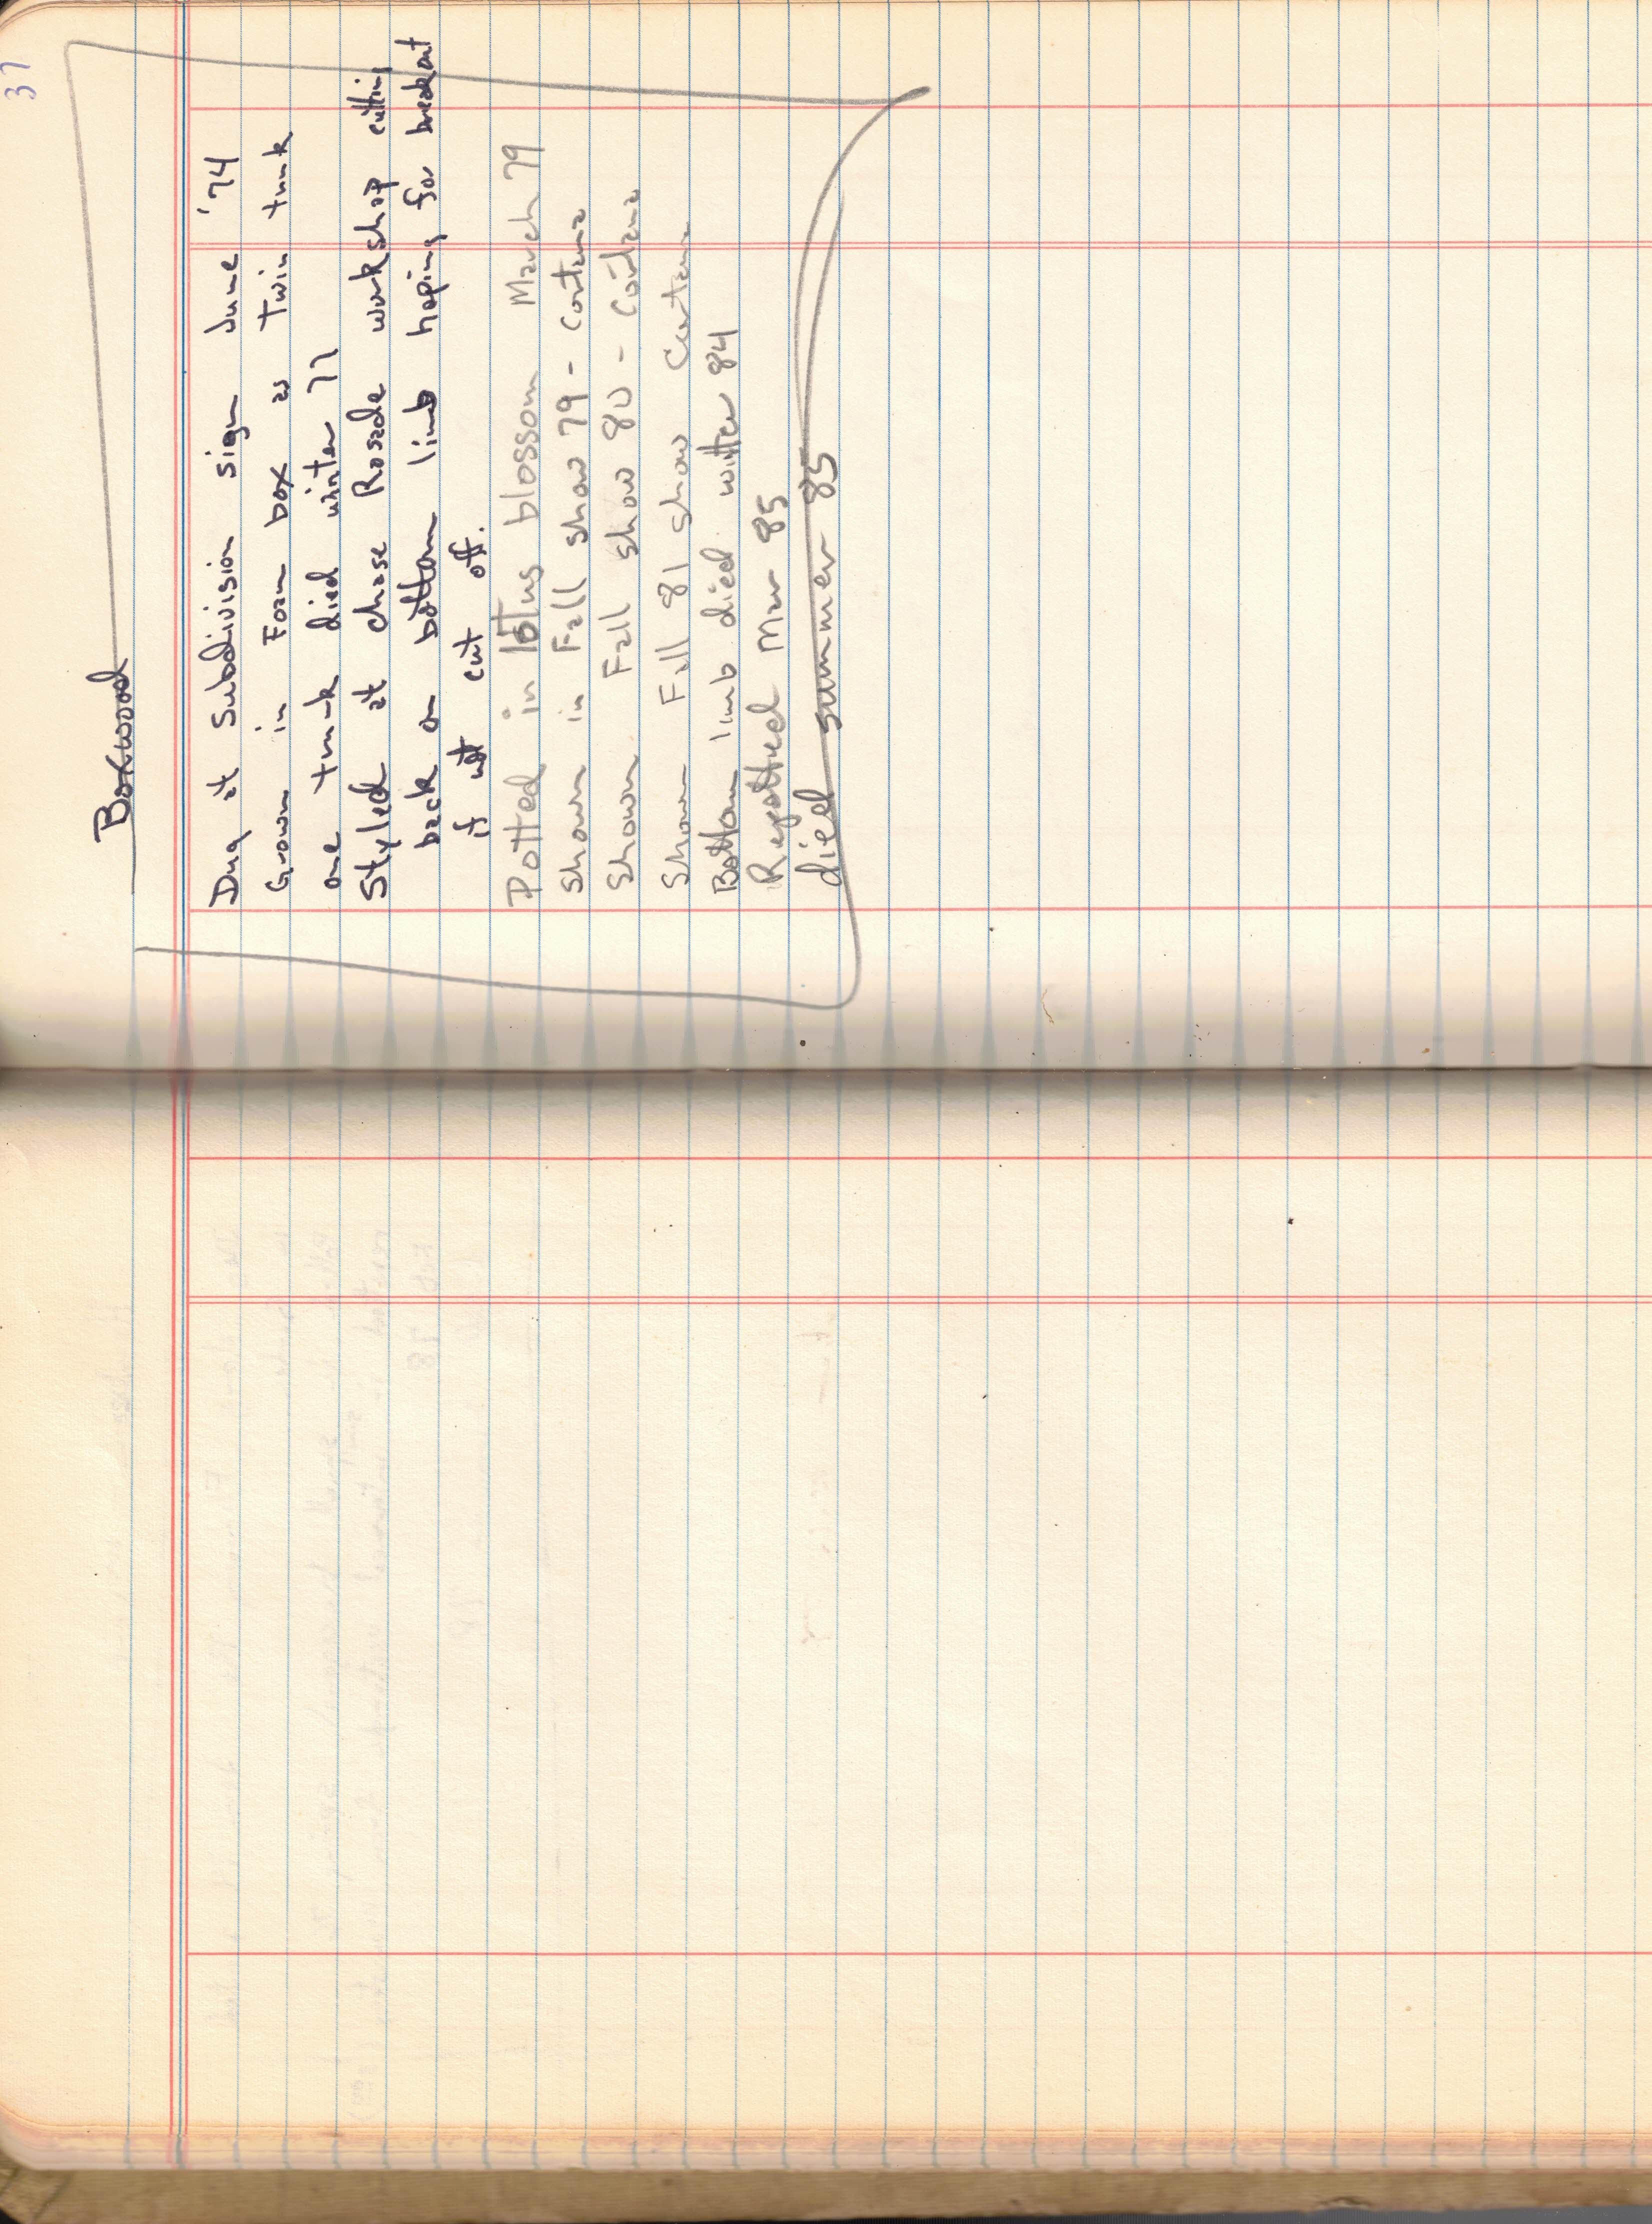 37
Boxwood
Dug at Subdivision sign June '74
Grown in Foam box as Twin trunk
one trunk died winter 77
Styled at chase Rosade workshop cutting
back on bottom limb hoping for breakout
if not cut off.
Potted in lotus blossom March 79
Shown in Fall show 79 - Cortana
Shown Fall show 80 - Cortana
Shown Fall 81 show Cortana
Bottom limb died winter 84
Repotted Mar 85
died summer 85